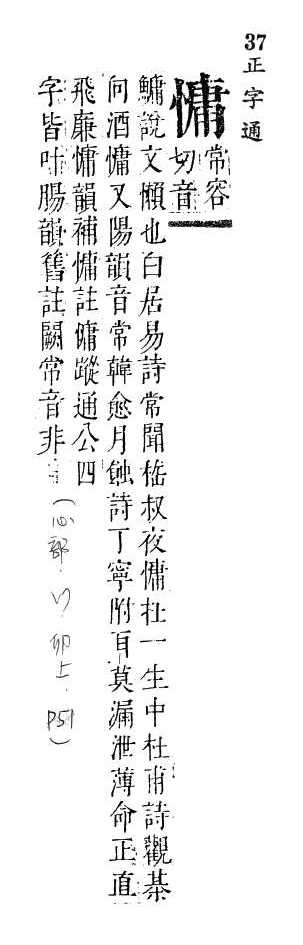 37正字通
慵
常容
切音
鱅說文懶也白居易詩常聞嵇叔夜慵在一生中杜甫詩觀棊
向酒慵又陽韻音常韓愈月蝕詩丁寧附耳莫漏泄薄命正直
飛廉慵韻補慵註傭蹤通公四
字皆叶腸韻舊註闕常音非
(心部.卯上.P51)